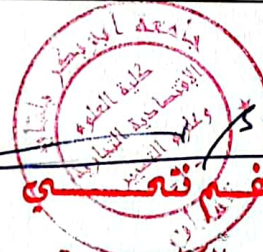 جامعة أبو بكر بلقايد
كلية العلوم
الإقتصادية التجارية
وعلوم التسيير
فتحي